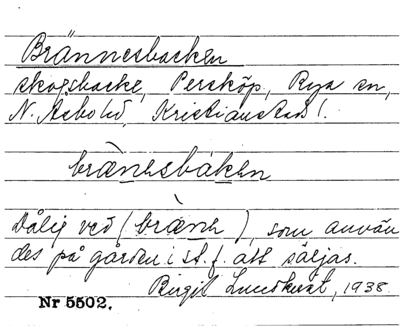 Brännesbacken
skogsbacke, Persköp, Rya sn,
N. Åsbo hd, Kristianstads l.
brànesbàken
Dålig ved (bràne), som använ
des på gården i st. f. att säljas.
Birgit Lundkvist, 1938.
Nr 5502.